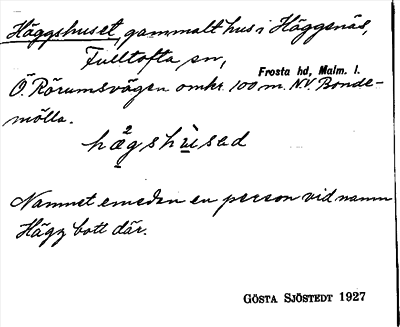 Häggshuset, gammalt hus i Häggsnäs,
Fulltofta sn,
Frosta hd, Malm. l.
Ö. Rörumsvägen omkr. 100 m. N.V. Bonde-
mölla.
hägshùsad
Namnet emedan en person vid namn
Hägg bott där.
GÖSTA SJÖSTEDT 1927